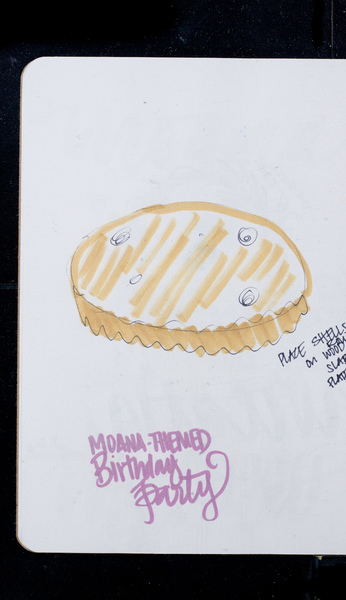 PLACE SHELLS
on WOOD
SLAB
MOANA-THEMED
Birthday
Party